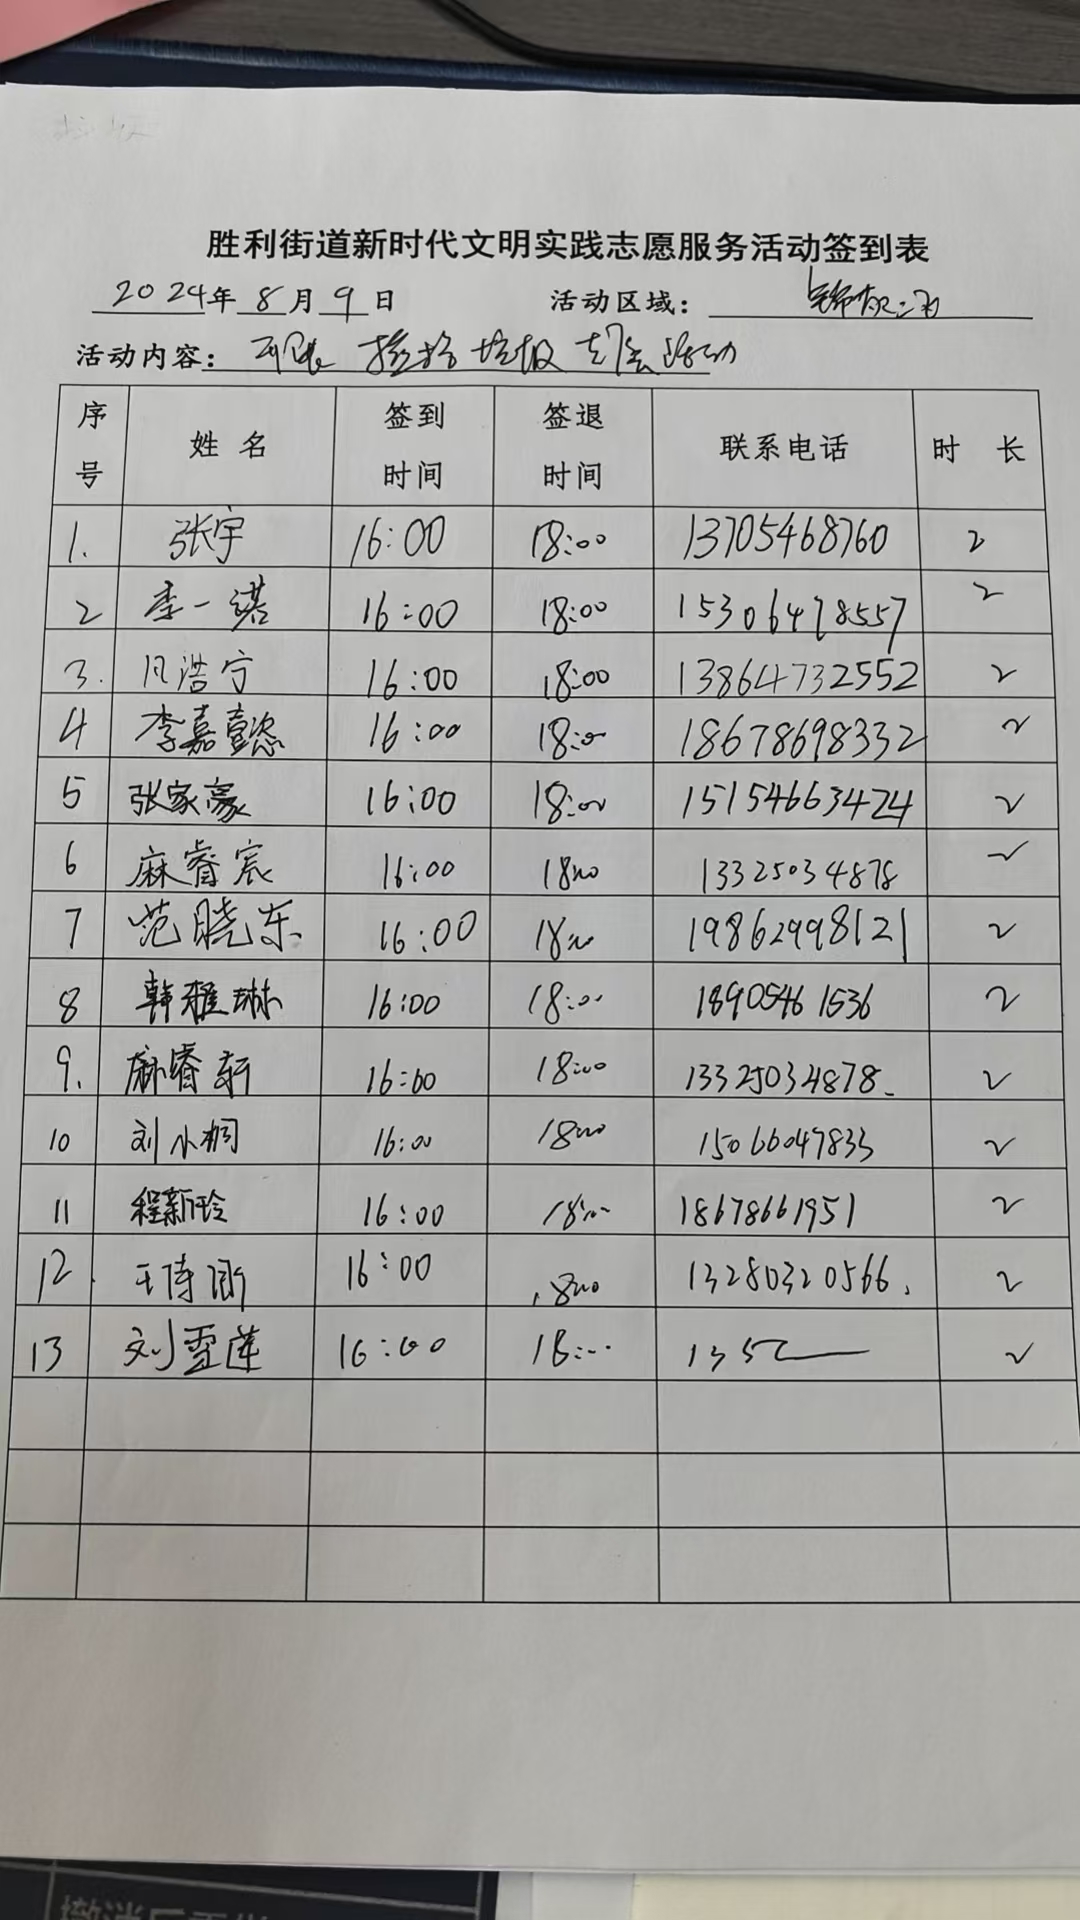 胜利街道新时代文明实践志愿服务活动签到表
2024年 8月 9日 活动区域：
活动内容： 开展 捡拾垃圾 活动
序号 姓名 签到时间 签退时间 联系电话 时长
1. 张宇 16:00 18:00 13705468760 2
2 李一诺 16:00 18:00 15306478557 2
3. 浩宁 16:00 18:00 13864732552 2
4 李嘉懿 16:00 18:00 18678698332 2
5 张家豪 16:00 18:00 15154663424 2
6 麻睿宸 16:00 18:00 13325034878 2
7 范晓东 16:00 18:00 19862998121 2
8 韩雅琳 16:00 18:00 18905461536 2
9. 麻睿轩 16:00 18:00 13325034878 2
10 刘小桐 16:00 18:00 15066047833 2
11 程新玲 16:00 18:00 18678661951 2
12. 王诗 16:00 18:00 13280320566. 2
13 刘雪莲 16:00 18:00 135 2